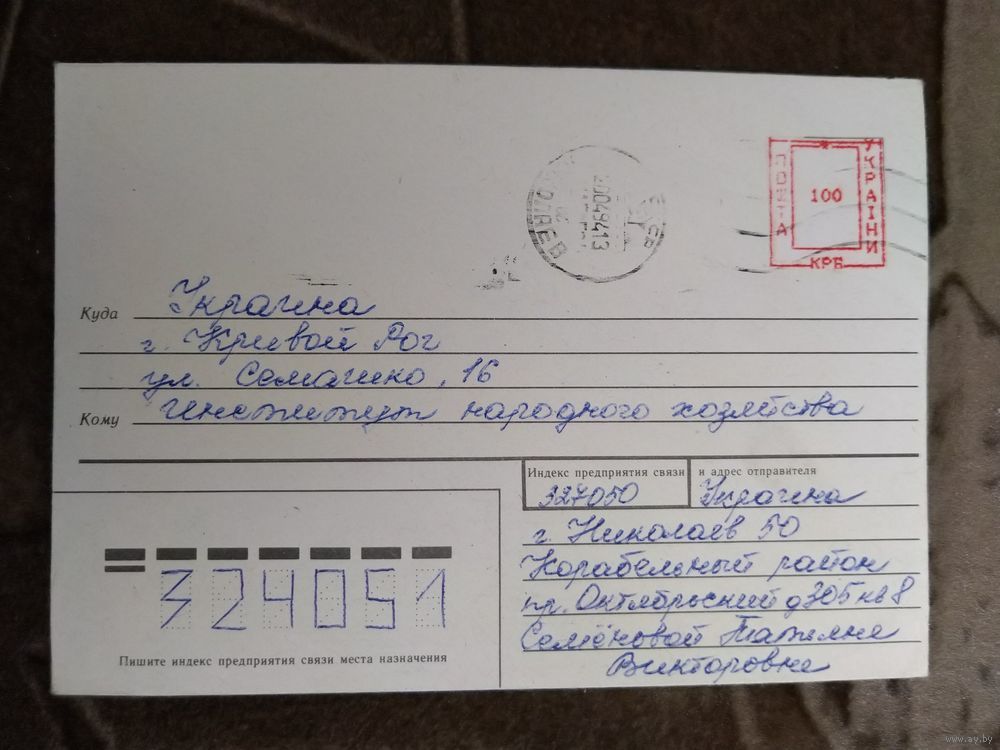 ПОШТА
УКРАЇНИ
100
КРБ
200494 13
Куда Украина
г. Кривой Рог
ул. Семашко, 16
Кому Институт народного хозяйства
Индекс предприятия связи
и адрес отправителя
327050
Украина
г. Николаев 50
Корабельный район
пр. Октябрьский д 305 кв 8
Семёновой Татьяне
Викторовне
324051
Пишите индекс предприятия связи места назначения
www.ay.by